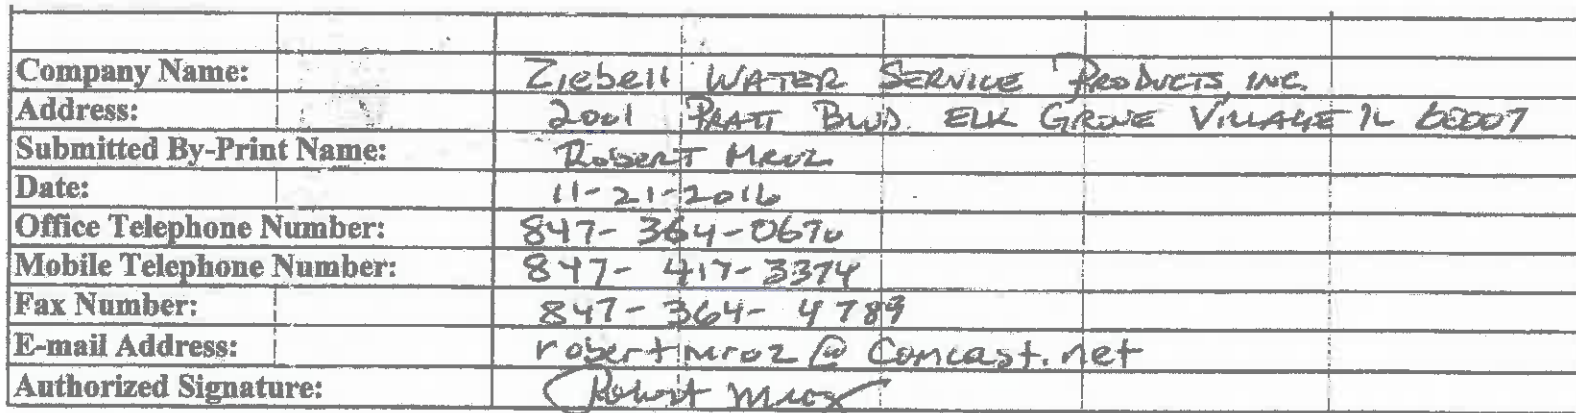 Company Name: Ziebell WATER SERVICE PRODUCTS, INC.
Address: 2001 PRATT BLVD. ELK GROVE VILLAGE IL 60007
Submitted By-Print Name: Robert Mroz
Date: 11-21-2016
Office Telephone Number: 847-364-0670
Mobile Telephone Number: 847-417-3374
Fax Number: 847-364-4789
E-mail Address: robertmroz@Comcast.net
Authorized Signature: Robert Mroz